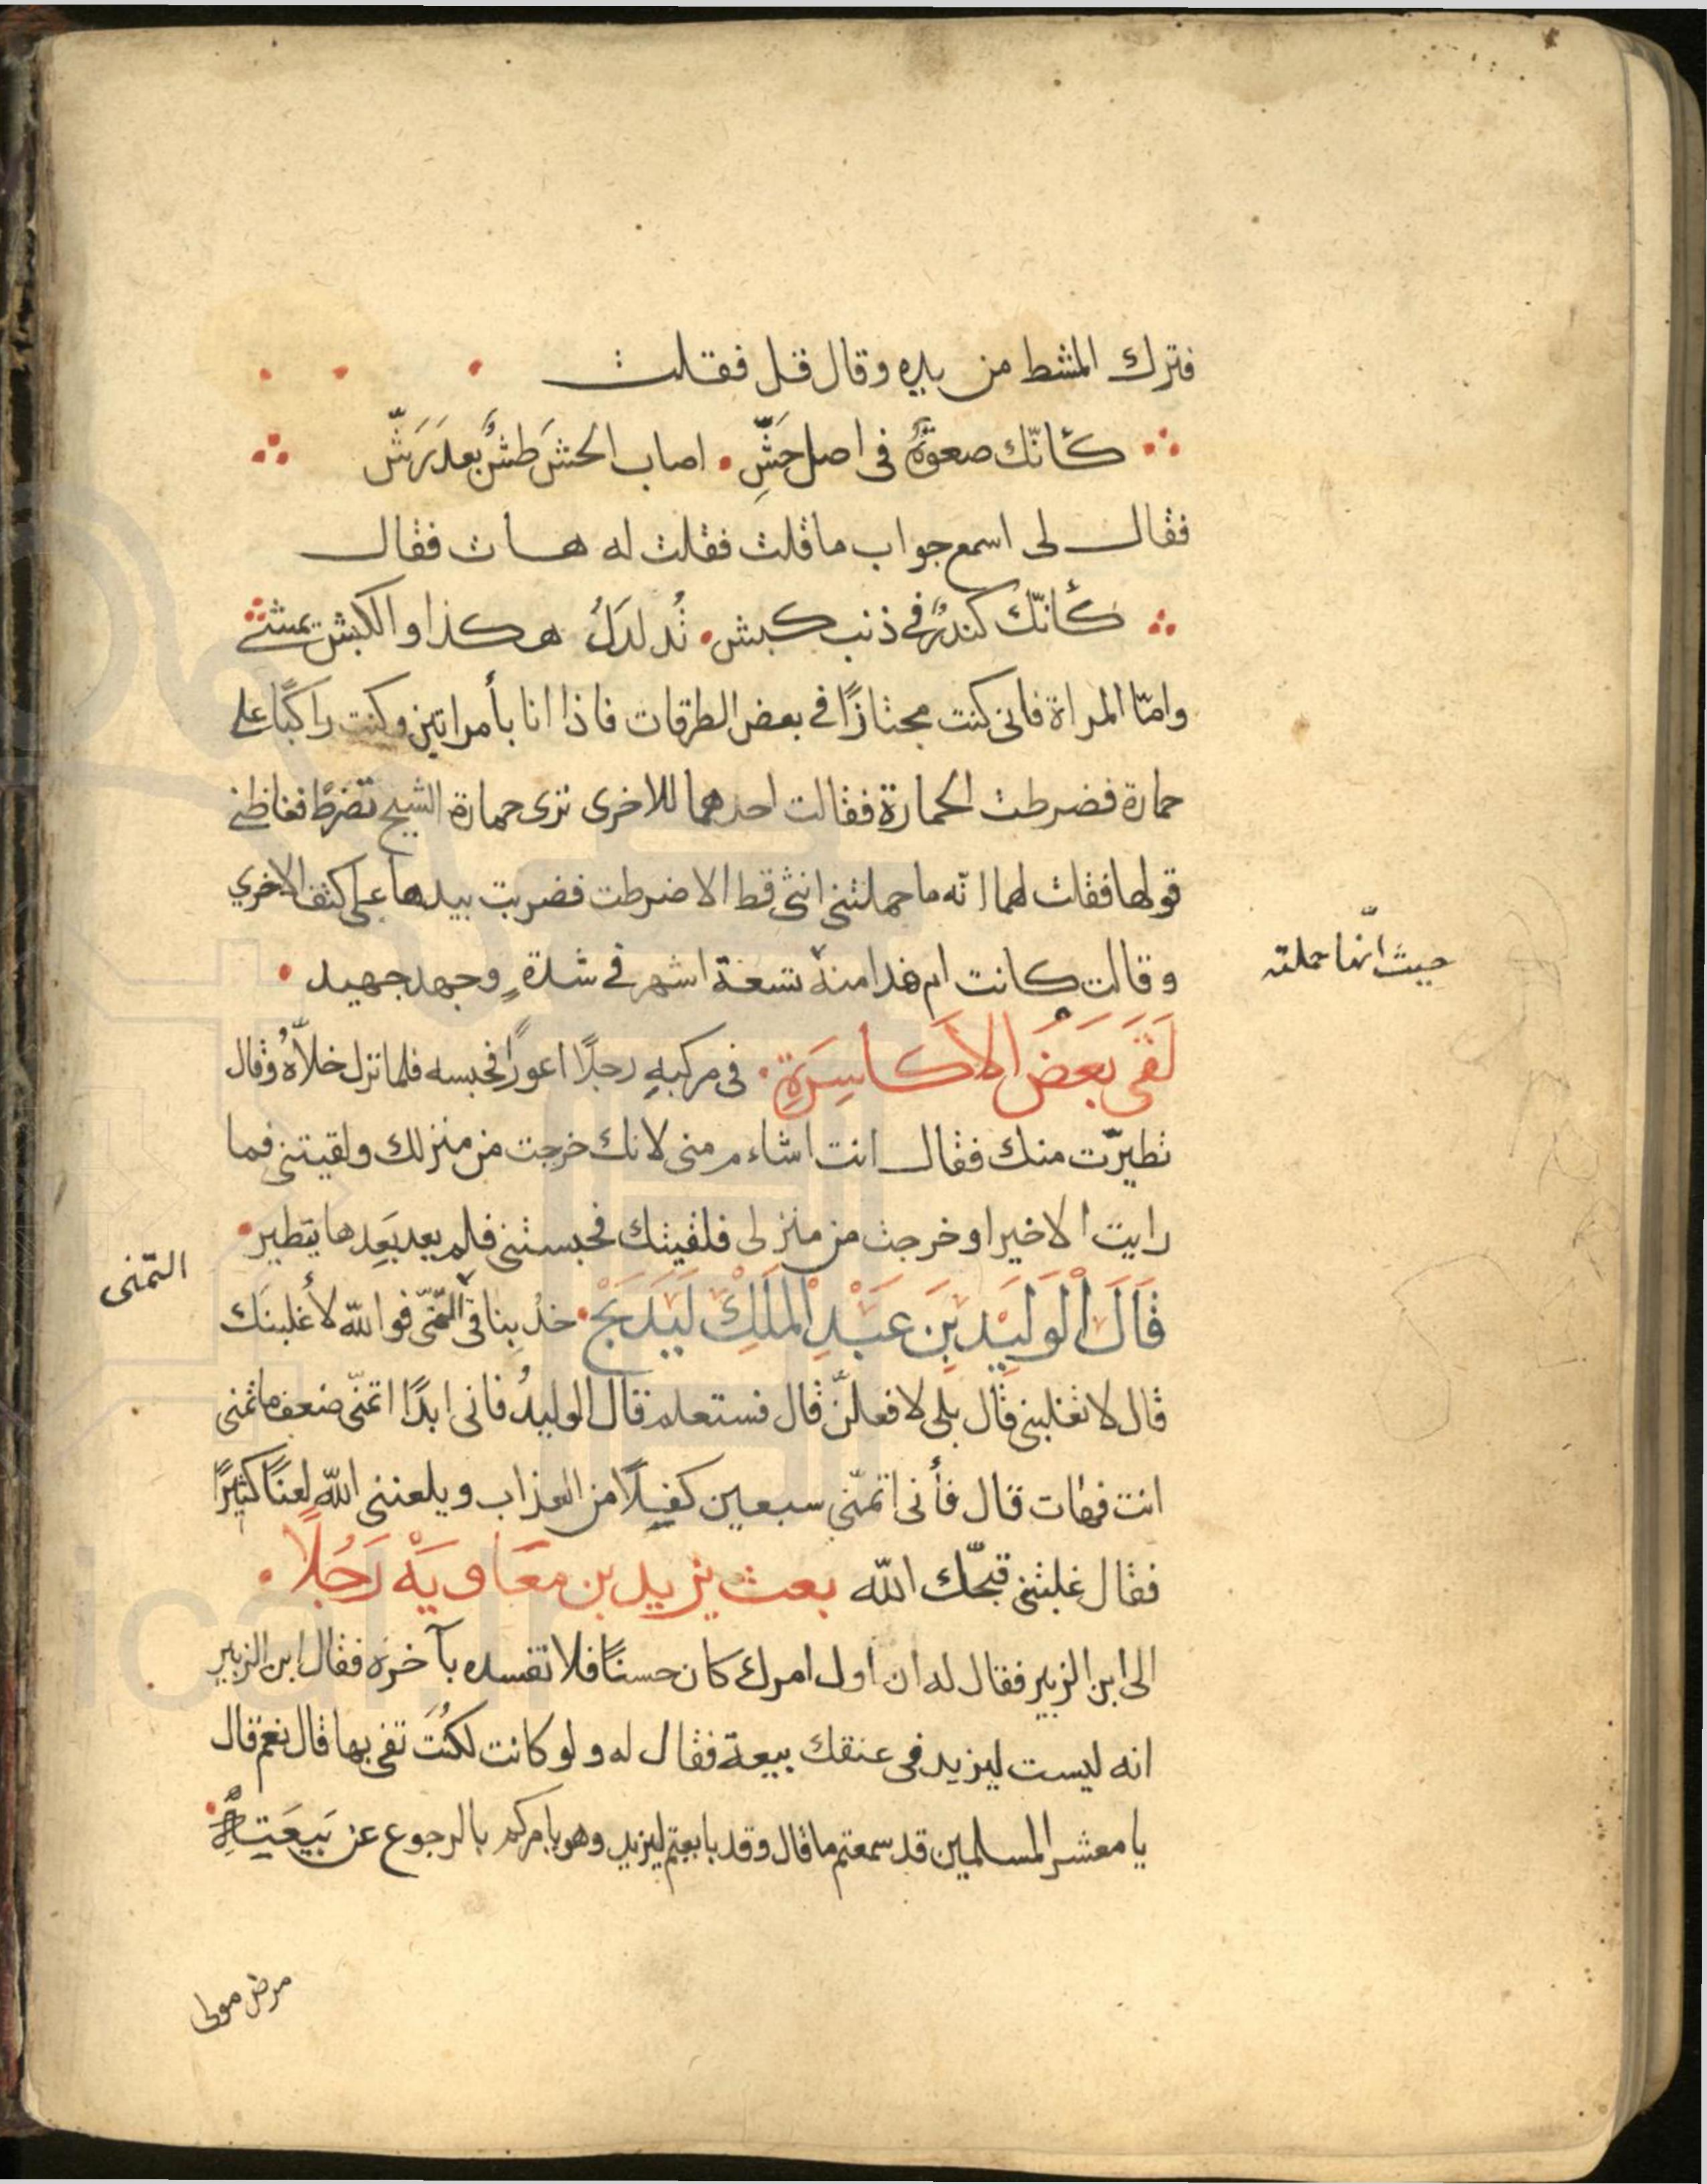 فترك المشط من يده وقال قل فقلت
كأنّك صعوة في اصل حَشِّ اصاب الحشَ طشٌّ بعدَ رَشّ
فقال لى اسمع جواب ما قلت فقلت له هات فقال
كأنّك كندرٌ في ذنب كبش تُدلدَلُ هكذا والكبش يمشي
وامّا المراة فانى كنت مجتازًا في بعض الطرقات فاذا انا بأمراتين وكنت راكبًا على
حمارة فضرطت الحمارة فقالت احدهما للاخرى ترى حمارة الشيخ تضرط فغاظني
قولها فقلت لهما انّه ما حملتنى انثى قط الا ضرطت فضربت بيدها على كتف الاخري
وقالت كانت ام هذا منه تسعة اشهر في شدةٍ وجهد جهيد
حيث انّما حملته
لَقَى بَعَضُ الاَكَاسِرَةِ فى مركبهِ رجلًا اعورًا فحبسه فلما نزل خلاّهُ وقال
تطيّرت منك فقال انت اشاءم منى لانك خرجت من منزلك ولقيتنى فما
رايت الا خيرا وخرجت من منزلى فلقيتك فحبستنى فلم يعد بَعِدها يتطير
قَالَ الْوَلَيِد بِن عَبْدِ الْمَلَكِ لَبَدَيَحْ خذ بنا في التّمنّى فوالله لأغلبنَك
التمنى
قال لا تغلبنى قال بلى لا فعلنّ قال فستعلم فقال الوليدُ فانى ابدًا اتمنّى ضعف ما تمنى
انت فهات قال فأنى اتمنّى سبعين كفيلًا من العذاب ويلعننى الله لعنًا كثيرًا
فقال غلبتنى قبّحك الله بعث يزيد بن معَاويَة رَجُلًا
الى ابن الزبير فقال له ان اول امرك كان حسنًا فلا تفسده بآخره فقال ابن الزبير
انه ليست ليزيد في عنقك بيعة فقال له ولو كانت لكُنَت تفى بها قال نعم قال
يا معشر المسلمين قد سمعتم ما قال وقد بايعتم ليزيد وهو يامركم بالرجوع عن بَيعَتِهِ
مرض مولى